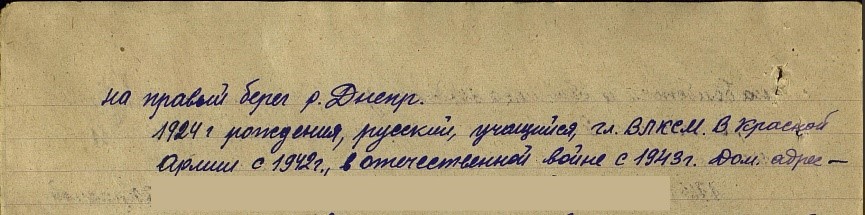 на правый берег р. Днепр.
1924 г рождения, русский, учащийся, чл. ВЛКСМ. В Красной
Армии с 1942г., в отечественной войне с 1943г. Дом. адрес —